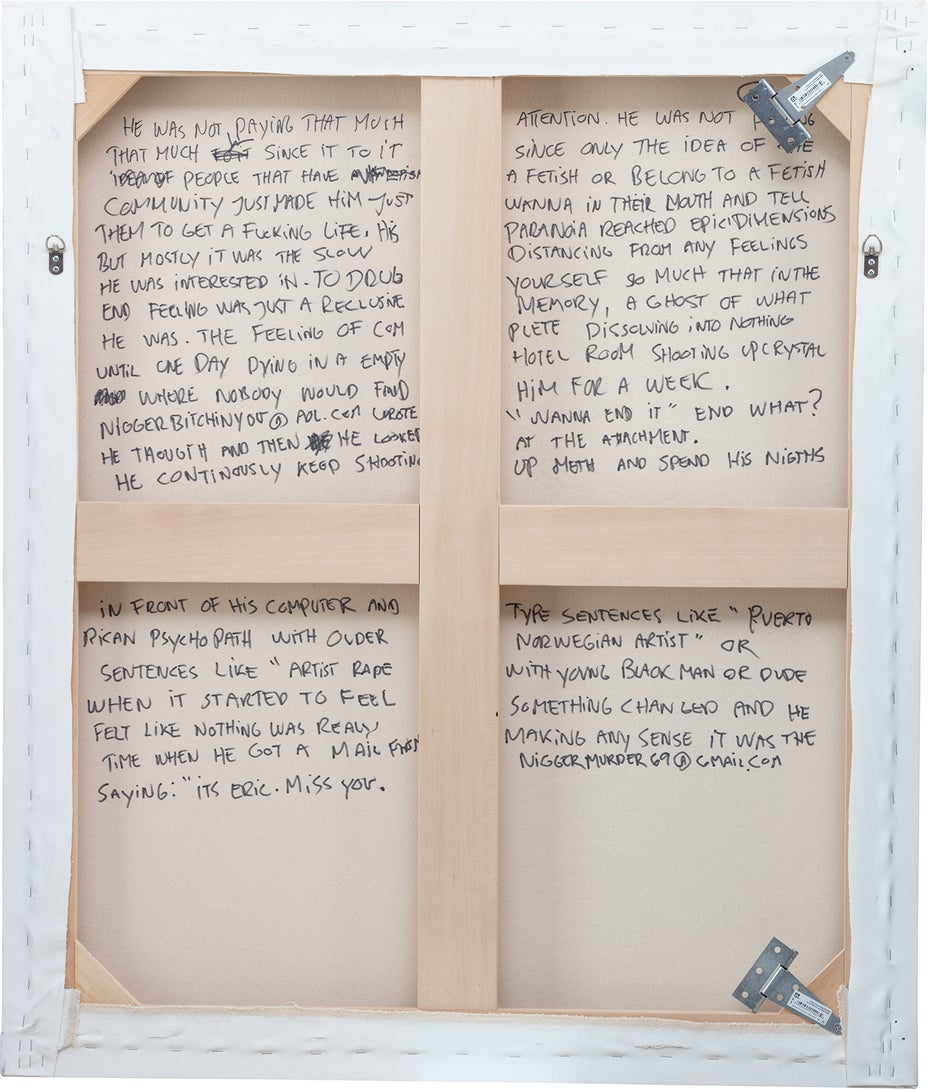 HE WAS NOT PAYING THAT MUCH ATTENTION. HE WAS NOT
THAT MUCH SINCE IT TO IT SINCE ONLY THE IDEA OF
OF PEOPLE THAT HAVE A FETISH OR BELONG TO A FETISH
COMMUNITY JUST MADE HIM JUST WANNA IN THEIR MOUTH AND TELL
THEM TO GET A FUCKING LIFE. HIS PARANOIA REACHED EPIC DIMENSIONS
BUT MOSTLY IT WAS THE SLOW DISTANCING FROM ANY FEELINGS
HE WAS INTERESTED IN. TO DRUG YOURSELF SO MUCH THAT IN THE
END FEELING WAS JUST A RECLUSIVE MEMORY, A GHOST OF WHAT
HE WAS. THE FEELING OF COM PLETE DISSOLVING INTO NOTHING
UNTIL ONE DAY DYING IN A EMPTY HOTEL ROOM SHOOTING UP CRYSTAL
WHERE NOBODY WOULD FIND HIM FOR A WEEK.
NIGGERBITCHINYOU@AOL.COM WROTE "WANNA END IT" END WHAT?
HE THOUGTH AND THEN HE LOOKED AT THE ATTACHMENT.
HE CONTINOUSLY KEEP SHOOTING UP METH AND SPEND HIS NIGTHS
IN FRONT OF HIS COMPUTER AND TYPE SENTENCES LIKE "PUERTO
RICAN PSYCHOPATH WITH OLDER NORWEGIAN ARTIST" OR
SENTENCES LIKE "ARTIST RAPE WITH YOUNG BLACK MAN OR DUDE
WHEN IT STARTED TO FEEL SOMETHING CHANGED AND HE
FELT LIKE NOTHING WAS REALY MAKING ANY SENSE IT WAS THE
TIME WHEN HE GOT A MAIL FROM NIGGERMURDER69@GMAIL.COM
SAYING: "ITS ERIC. MISS YOU.